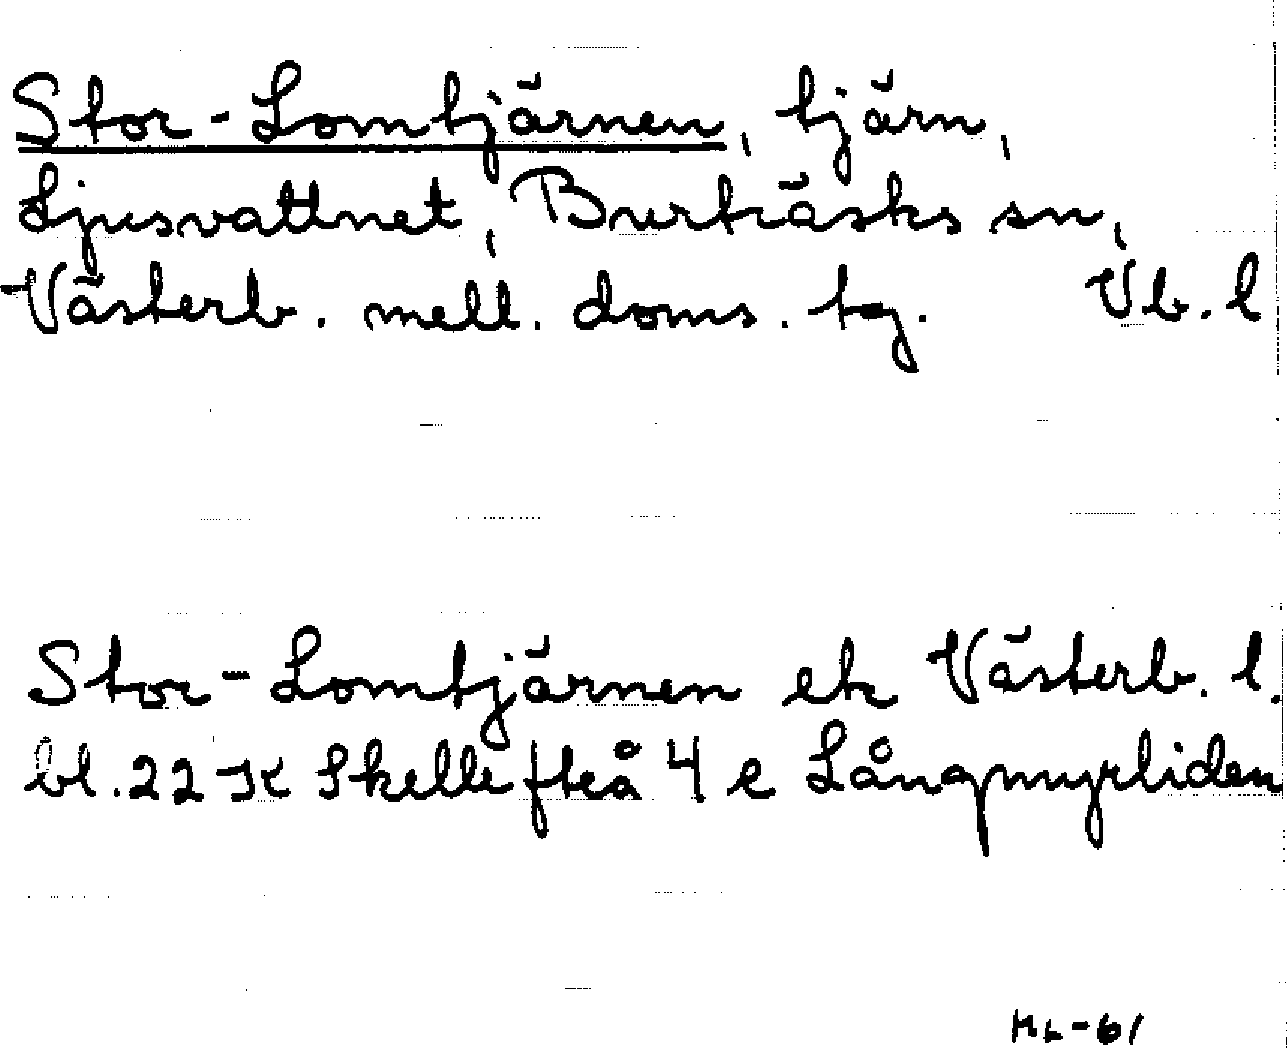 Stor-Lomtjärnen, tjärn,
Ljusvattnet, Burträsks sn,
Västerb. mell. doms. tg. Vb. l
Stor-Lomtjärnen ek Västerb. l.
bl. 22 K Skellefteå 4 e Långmyrliden
ML-61